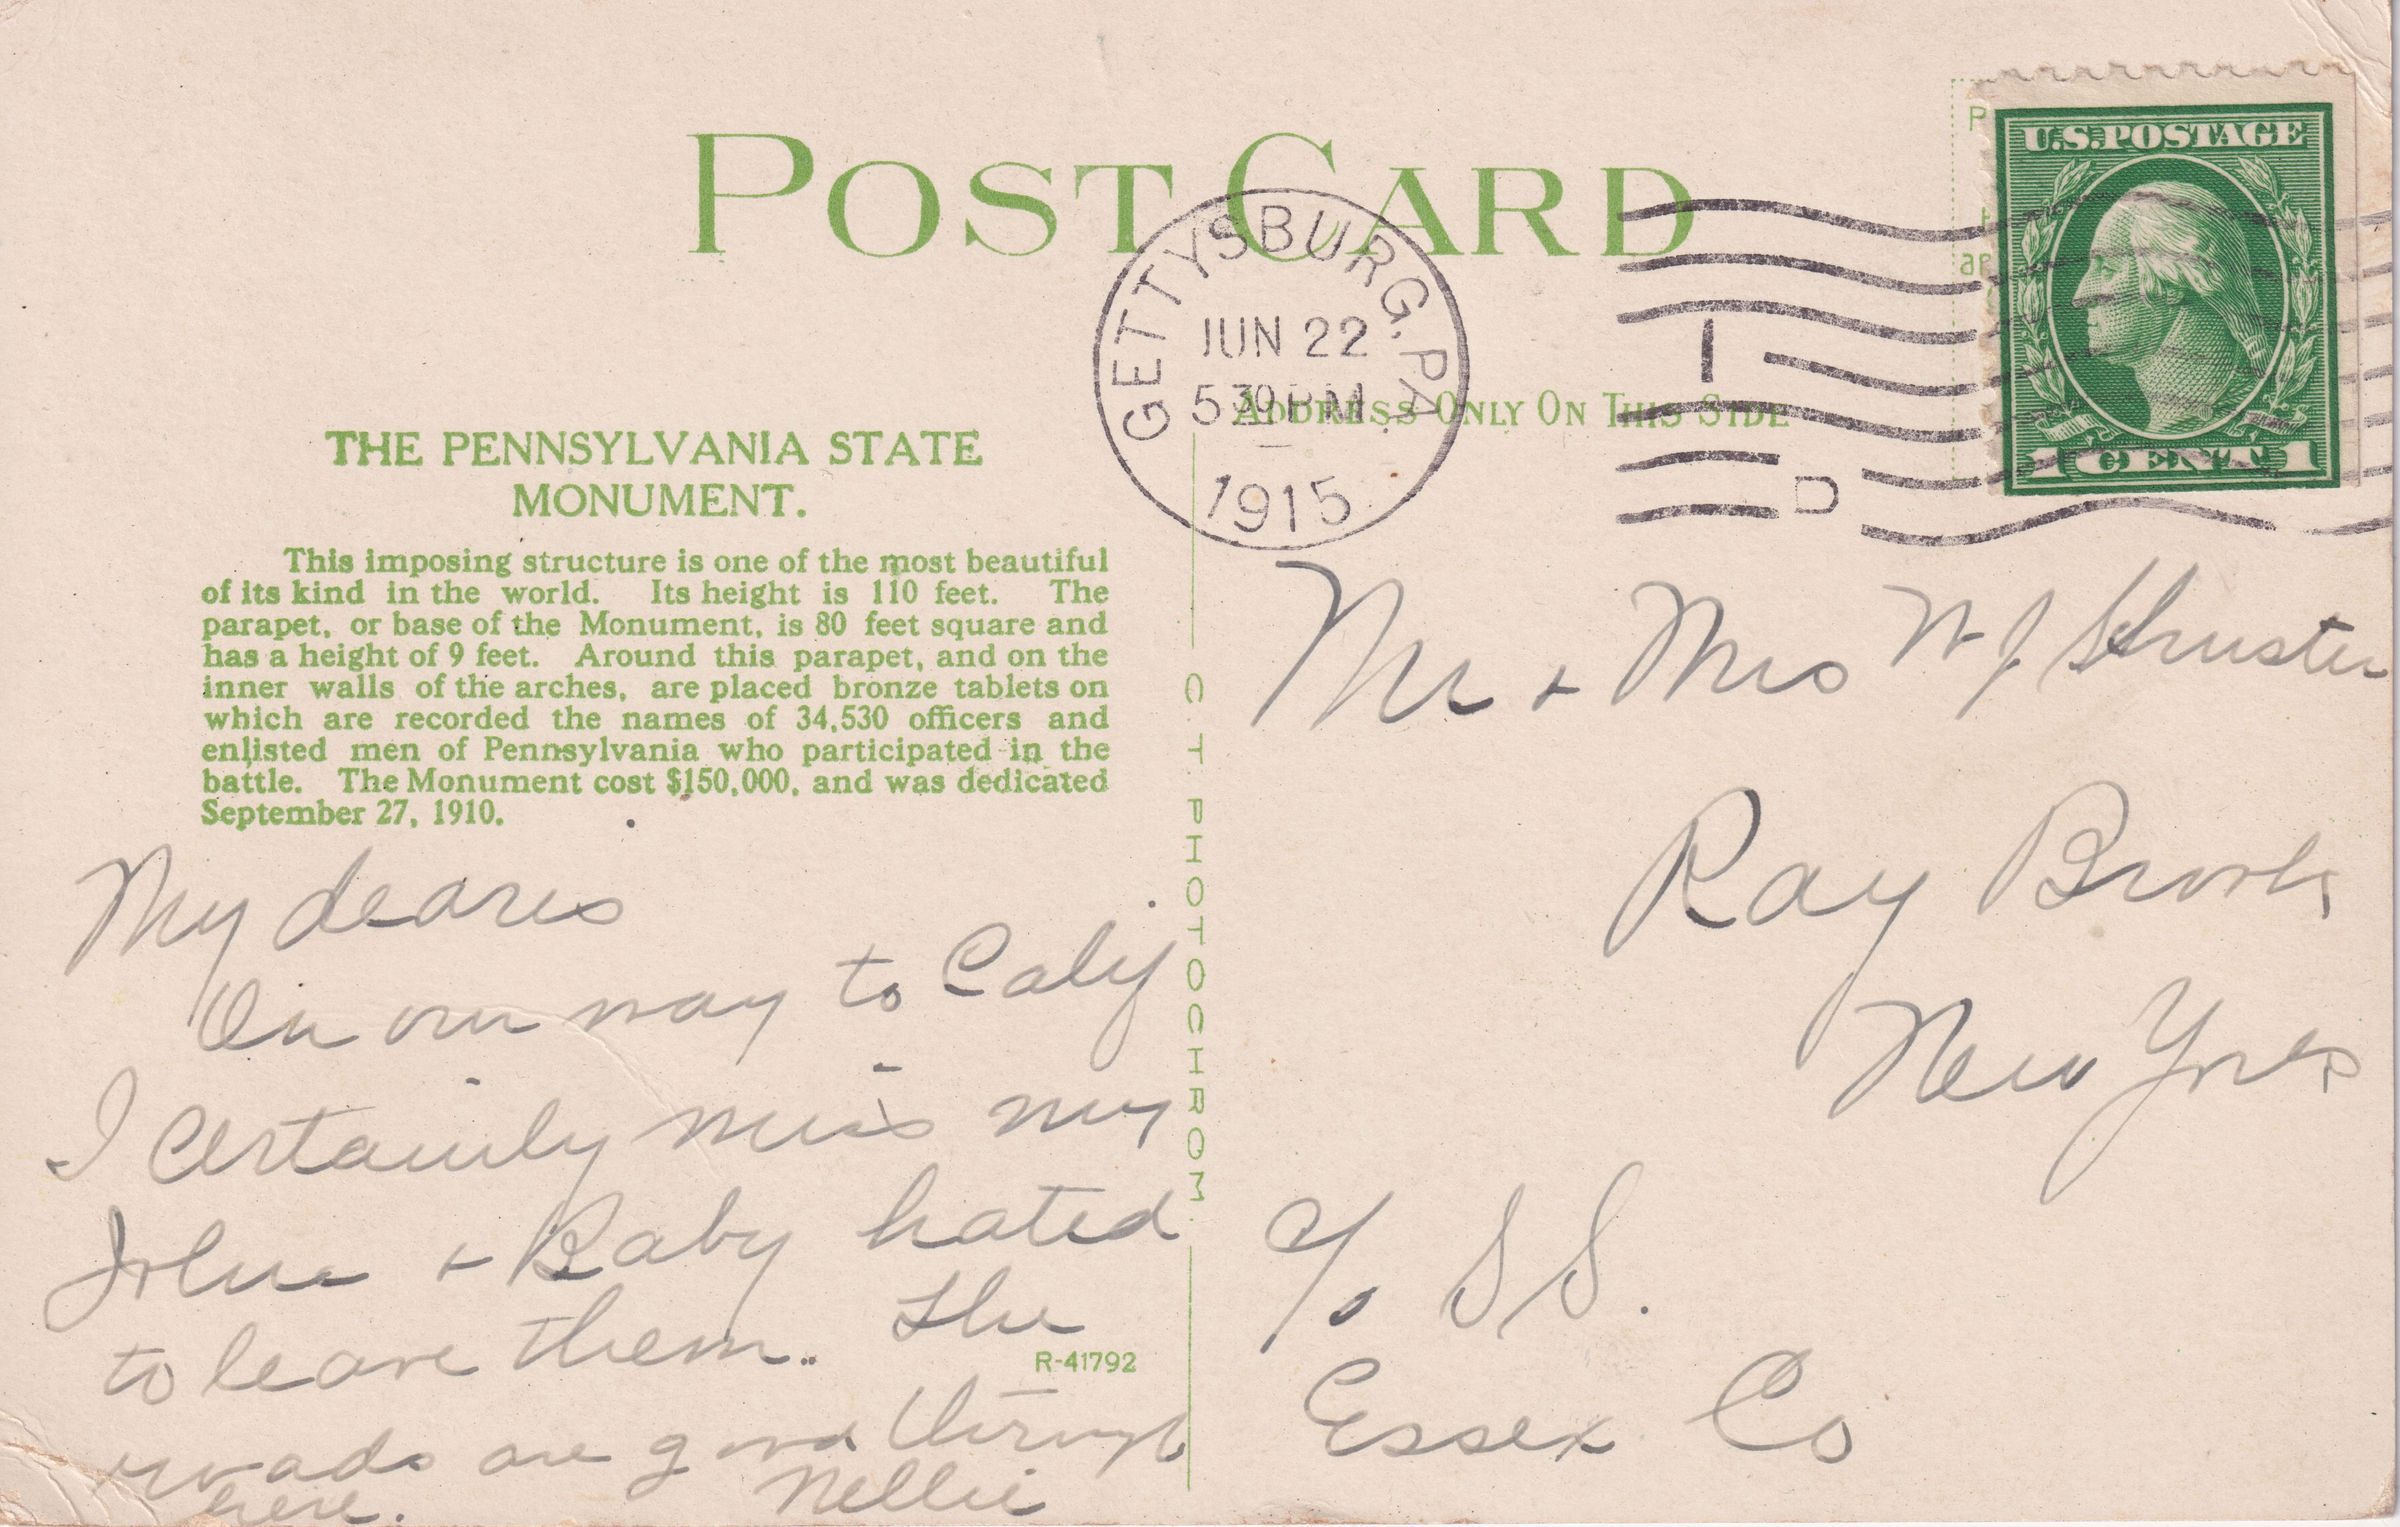 POST CARD
U.S. POSTAGE
1 CENT 1
GETTYSBURG, PA.
JUN 22
5 30 PM
1915
D
ADDRESS ONLY ON THIS SIDE
THE PENNSYLVANIA STATE
MONUMENT.
This imposing structure is one of the most beautiful
of its kind in the world. Its height is 110 feet. The
parapet, or base of the Monument, is 80 feet square and
has a height of 9 feet. Around this parapet, and on the
inner walls of the arches, are placed bronze tablets on
which are recorded the names of 34,530 officers and
enlisted men of Pennsylvania who participated in the
battle. The Monument cost $150,000, and was dedicated
September 27, 1910.
My dears
On our way to Calif
I certainly miss my
+ Baby hated
to leave them. The
roads are good through
here. Nellie
R-41792
C. T. PHOTOCHROM.
Mr + Mrs W J Shuster
Ray Brook
New York
c/o S S.
Essex Co